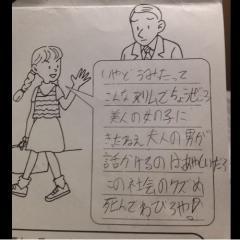 いやどうみたって
こんなスリムでちょうぜつ
美人の女の子に
きたねえ大人の男が
話かけるのはあやしいだろ
この社会のクズめ
死んでわびろや